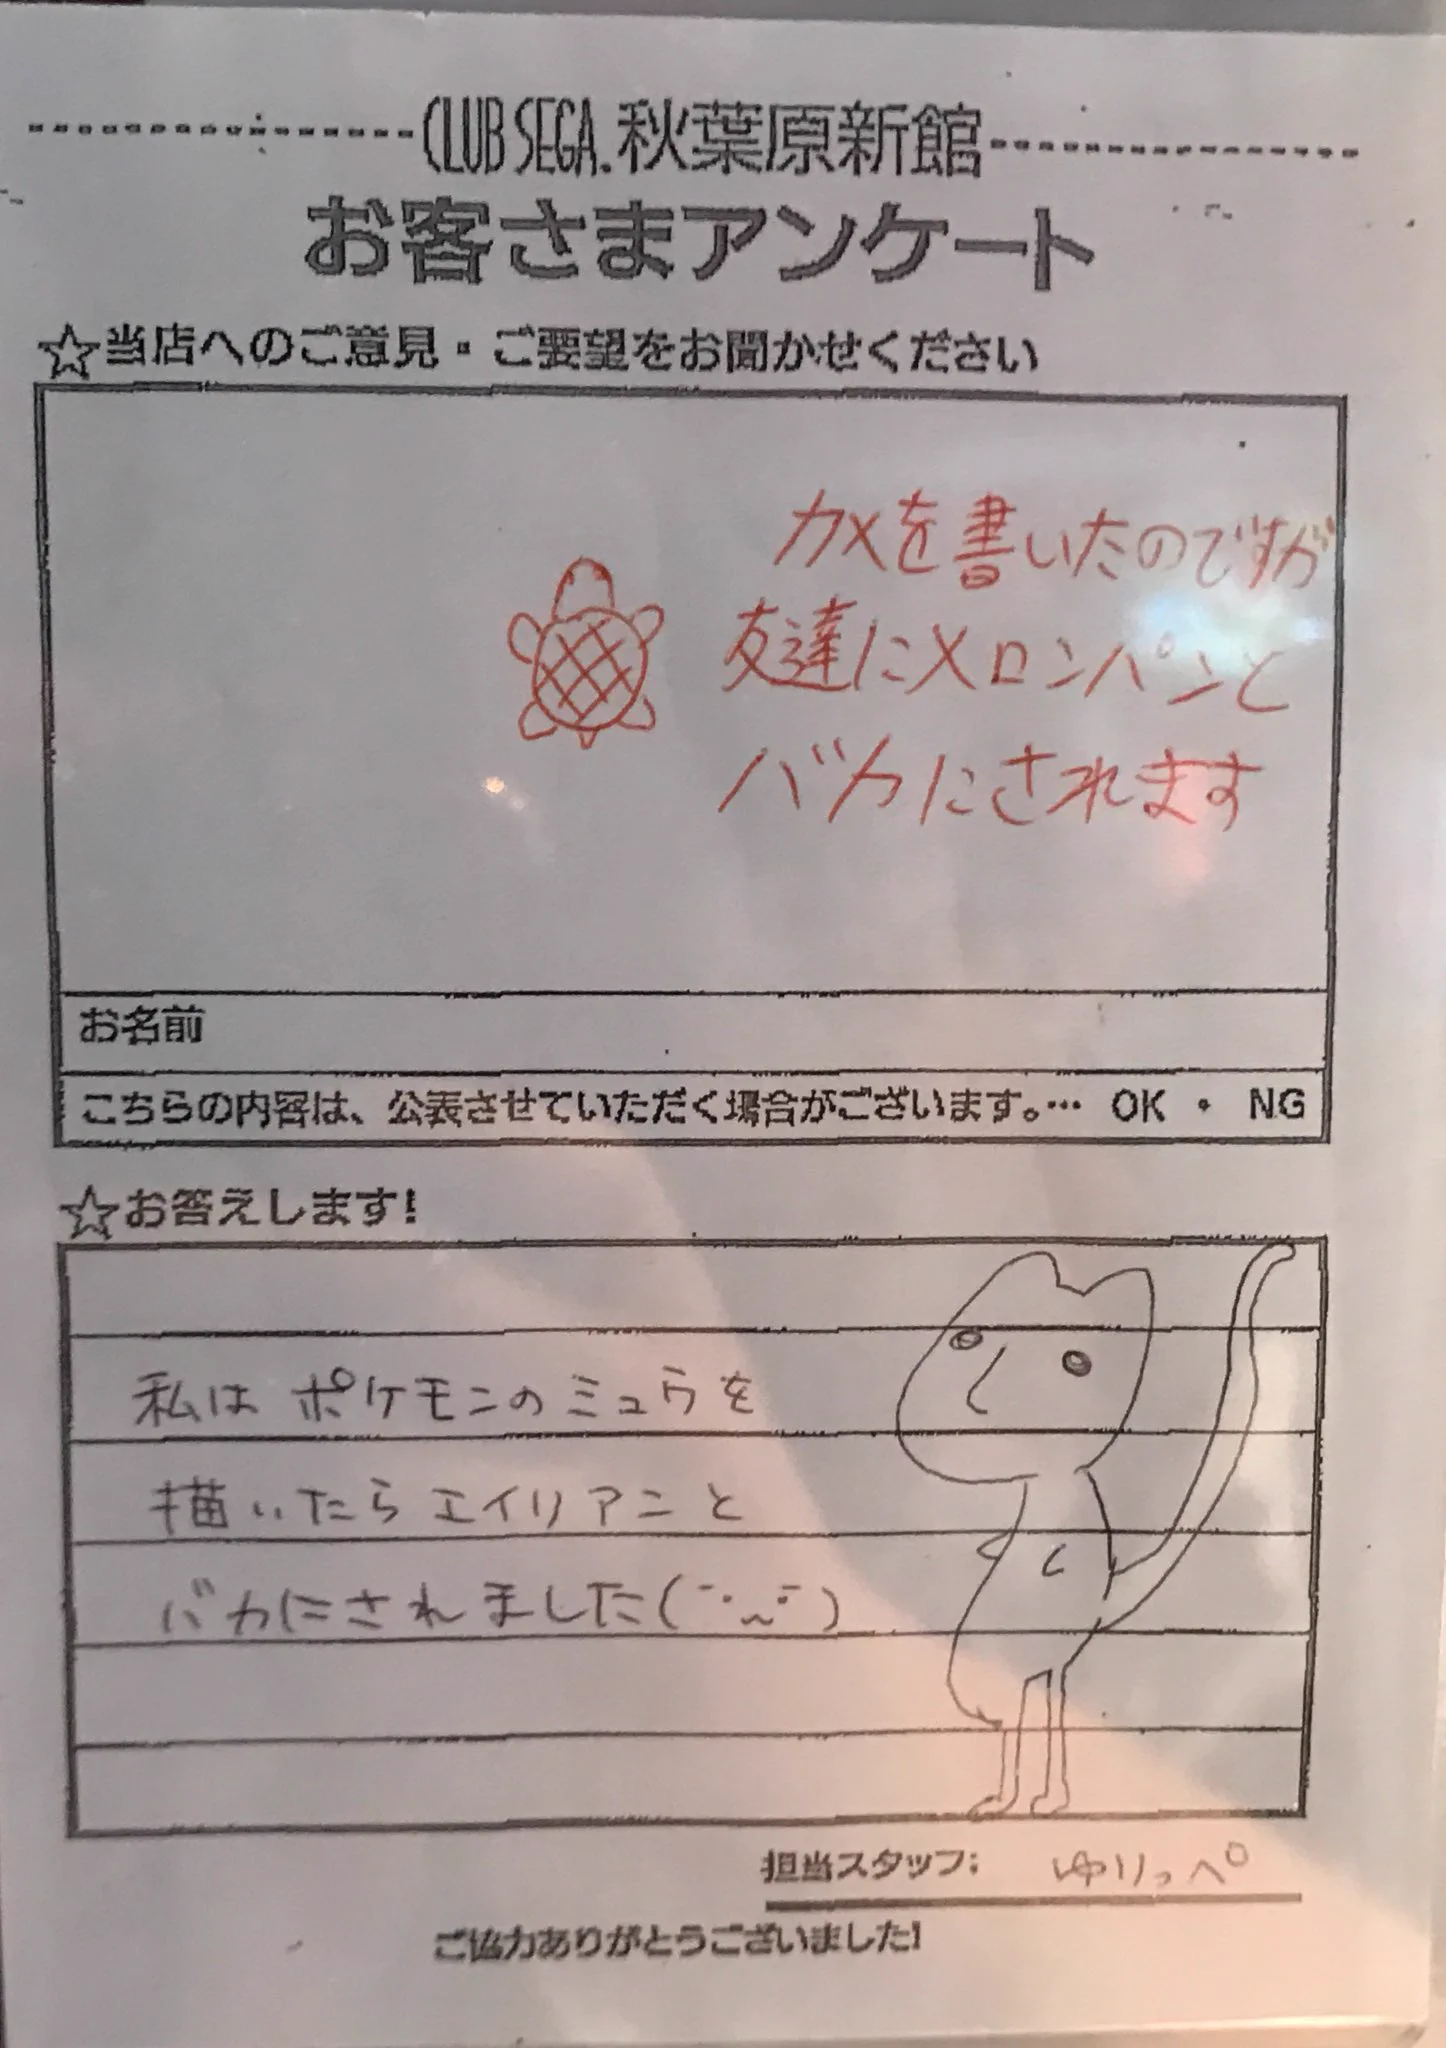 CLUB SEGA. 秋葉原新館
お客さまアンケート
☆当店へのご意見・ご要望をお聞かせください
カメを書いたのですが
友達にメロンパンと
バカにされます
お名前
こちらの内容は、公表させていただく場合がございます。… OK ・ NG
☆お答えします!
私はポケモンのミュウを
描いたらエイリアンと
バカにされました(¯･ω･¯)
担当スタッフ: ゆりっぺ
ご協力ありがとうございました!